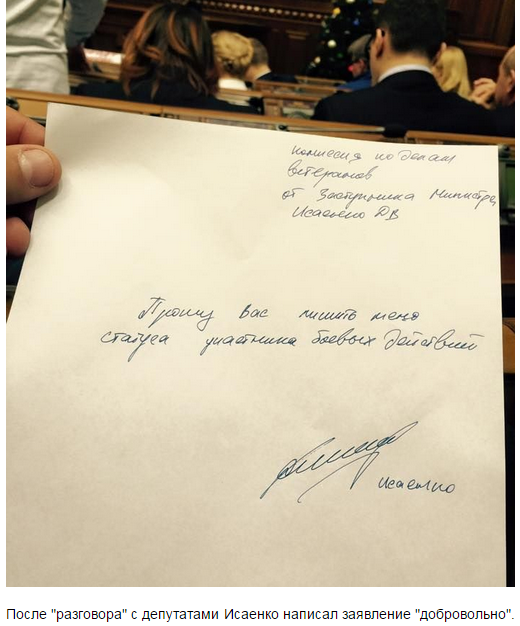 комиссия по делам
ветеранов
от Заступника Министра
Исаенко ДВ
Прошу Вас лишить меня
статуса участника боевых действий
Исаенко
После "разговора" с депутатами Исаенко написал заявление "добровольно".